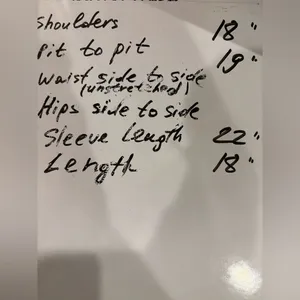 Shoulders 18"
Pit to pit 19"
Waist side to side
(unstretched)
Hips side to side
Sleeve Length 22"
Length 18"